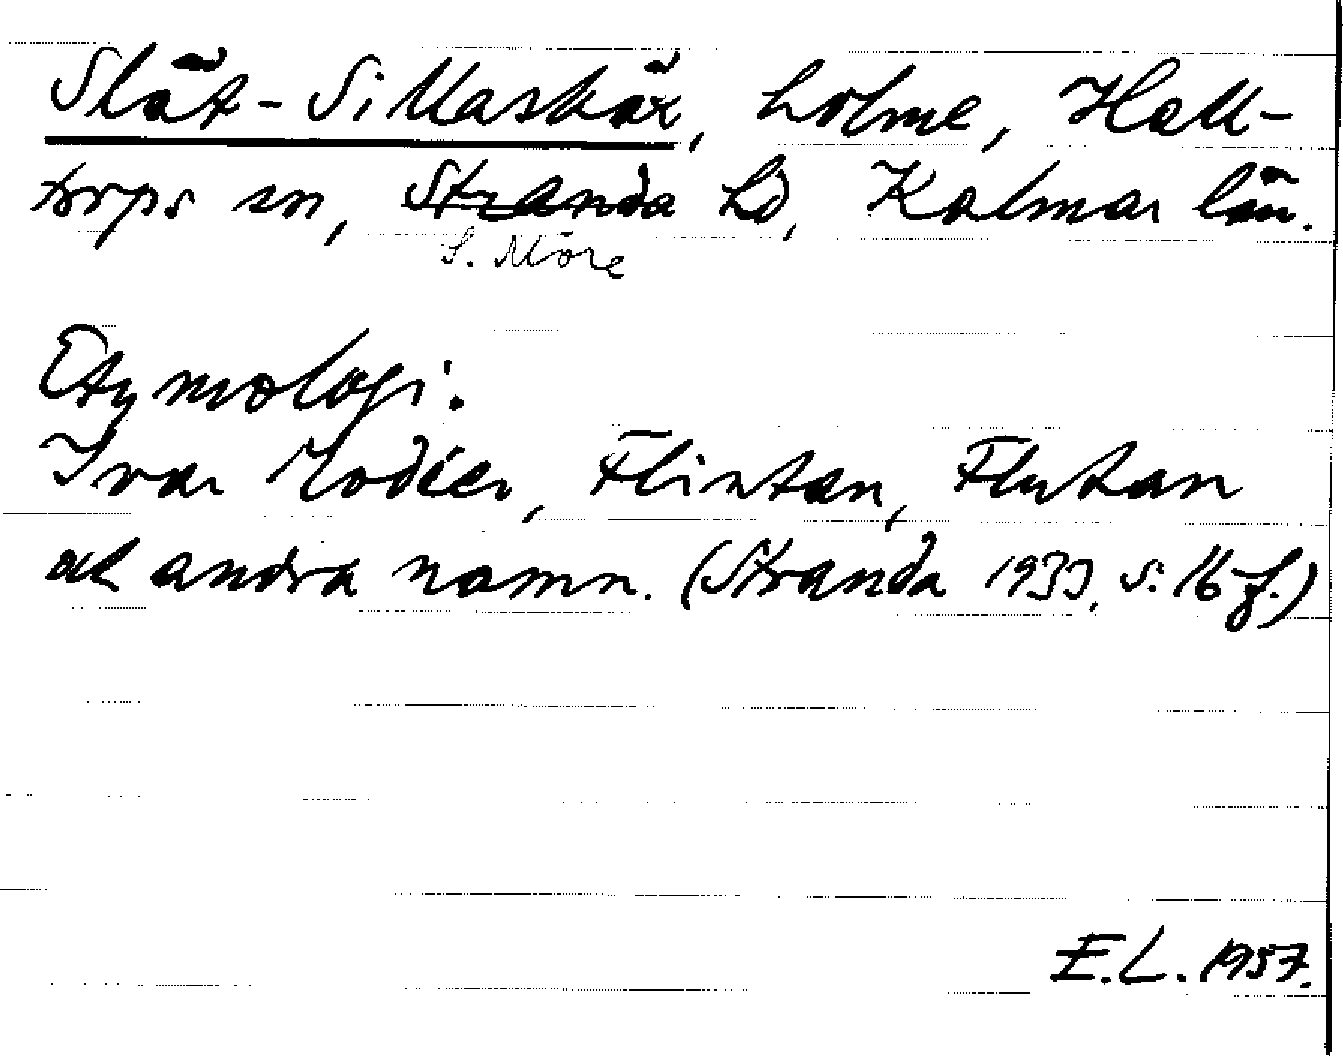 Slät-Sillaskär, holme, Hall-
torps sn, Stranda hd, Kalmar län.
S. Möre
Etymologi:
Ivar Modéer, Flintan, Flutan
och andra namn. (Stranda 1933, s. 16 f.)
E.L. 1957.